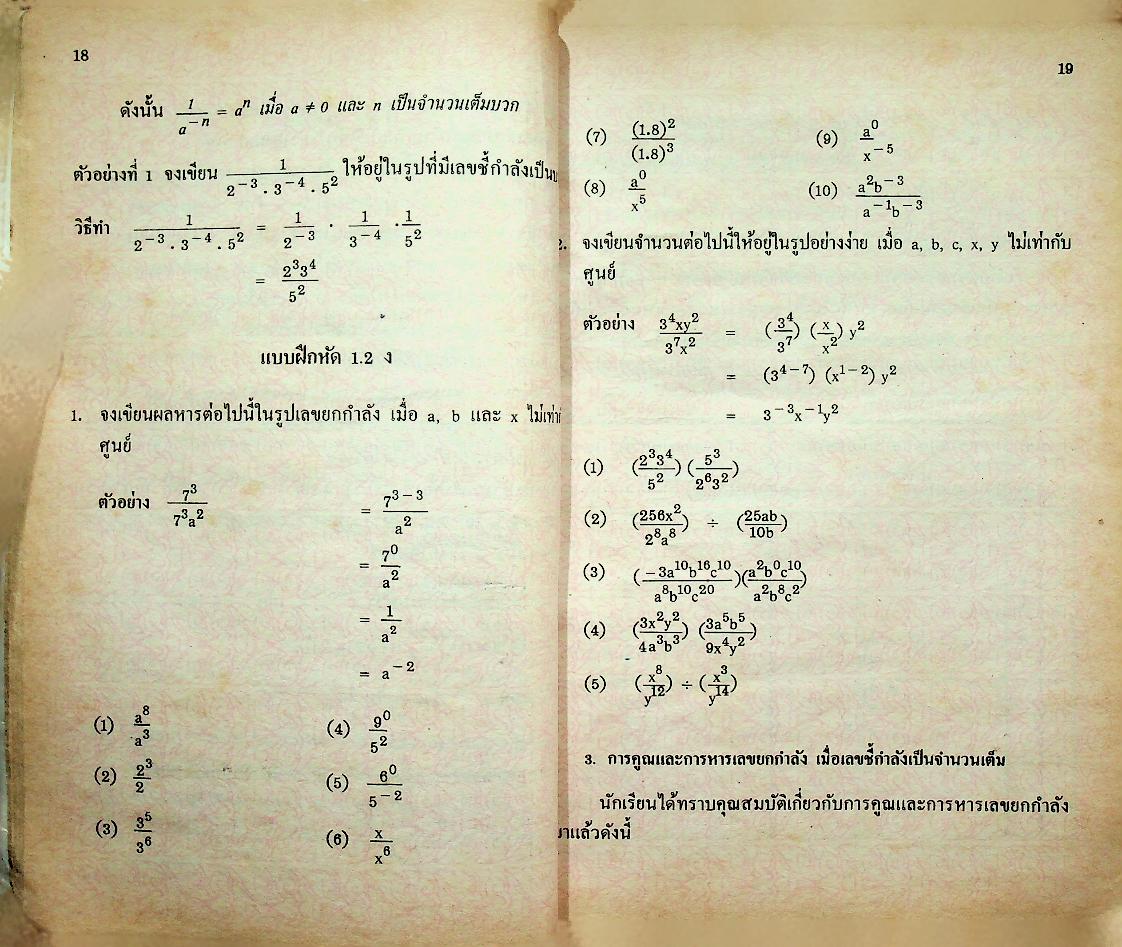 18
ดังนั้น 1/a⁻ⁿ = aⁿ เมื่อ a ≠ 0 และ n เป็นจำนวนเต็มบวก
ตัวอย่างที่ 1 จงเขียน 1/(2⁻³ . 3⁻⁴ . 5²) ให้อยู่ในรูปที่มีเลขชี้กำลังเป็น
วิธีทำ 1/(2⁻³ . 3⁻⁴ . 5²) = 1/2⁻³ . 1/3⁻⁴ . 1/5²
= 2³3⁴/5²
แบบฝึกหัด 1.2 ง
1. จงเขียนผลหารต่อไปนี้ในรูปเลขยกกำลัง เมื่อ a, b และ x ไม่เท่า
ศูนย์
ตัวอย่าง 7³/7³a² = 7³⁻³/a²
= 7⁰/a²
= 1/a²
= a⁻²
(1) a⁸/a³ (4) 9⁰/5²
(2) 2³/2 (5) 6⁰/5⁻²
(3) 3⁵/3⁶ (6) x/x⁶
19
(7) (1.8)²/(1.8)³ (9) a⁰/x⁻⁵
(8) a⁰/x⁵ (10) a²b⁻³/a⁻¹b⁻³
2. จงเขียนจำนวนต่อไปนี้ให้อยู่ในรูปอย่างง่าย เมื่อ a, b, c, x, y ไม่เท่ากับ
ศูนย์
ตัวอย่าง 3⁴xy²/3⁷x² = (3⁴/3⁷) (x/x²) y²
= (3⁴⁻⁷) (x¹⁻²) y²
= 3⁻³x⁻¹y²
(1) (2³3⁴/5²) (5³/2⁶3²)
(2) (256x²/2⁸a⁸) ÷ (25ab/10b)
(3) (−3a¹⁰b¹⁶c¹⁰/a⁸b¹⁰c²⁰)(a²b⁰c¹⁰/a²b⁸c²)
(4) (3x²y²/4a³b³) (3a⁵b⁵/9x⁴y²)
(5) (x⁸/y¹²) ÷ (x³/y¹⁴)
3. การคูณและการหารเลขยกกำลัง เมื่อเลขชี้กำลังเป็นจำนวนเต็ม
นักเรียนได้ทราบคุณสมบัติเกี่ยวกับการคูณและการหารเลขยกกำลัง
มาแล้วดังนี้